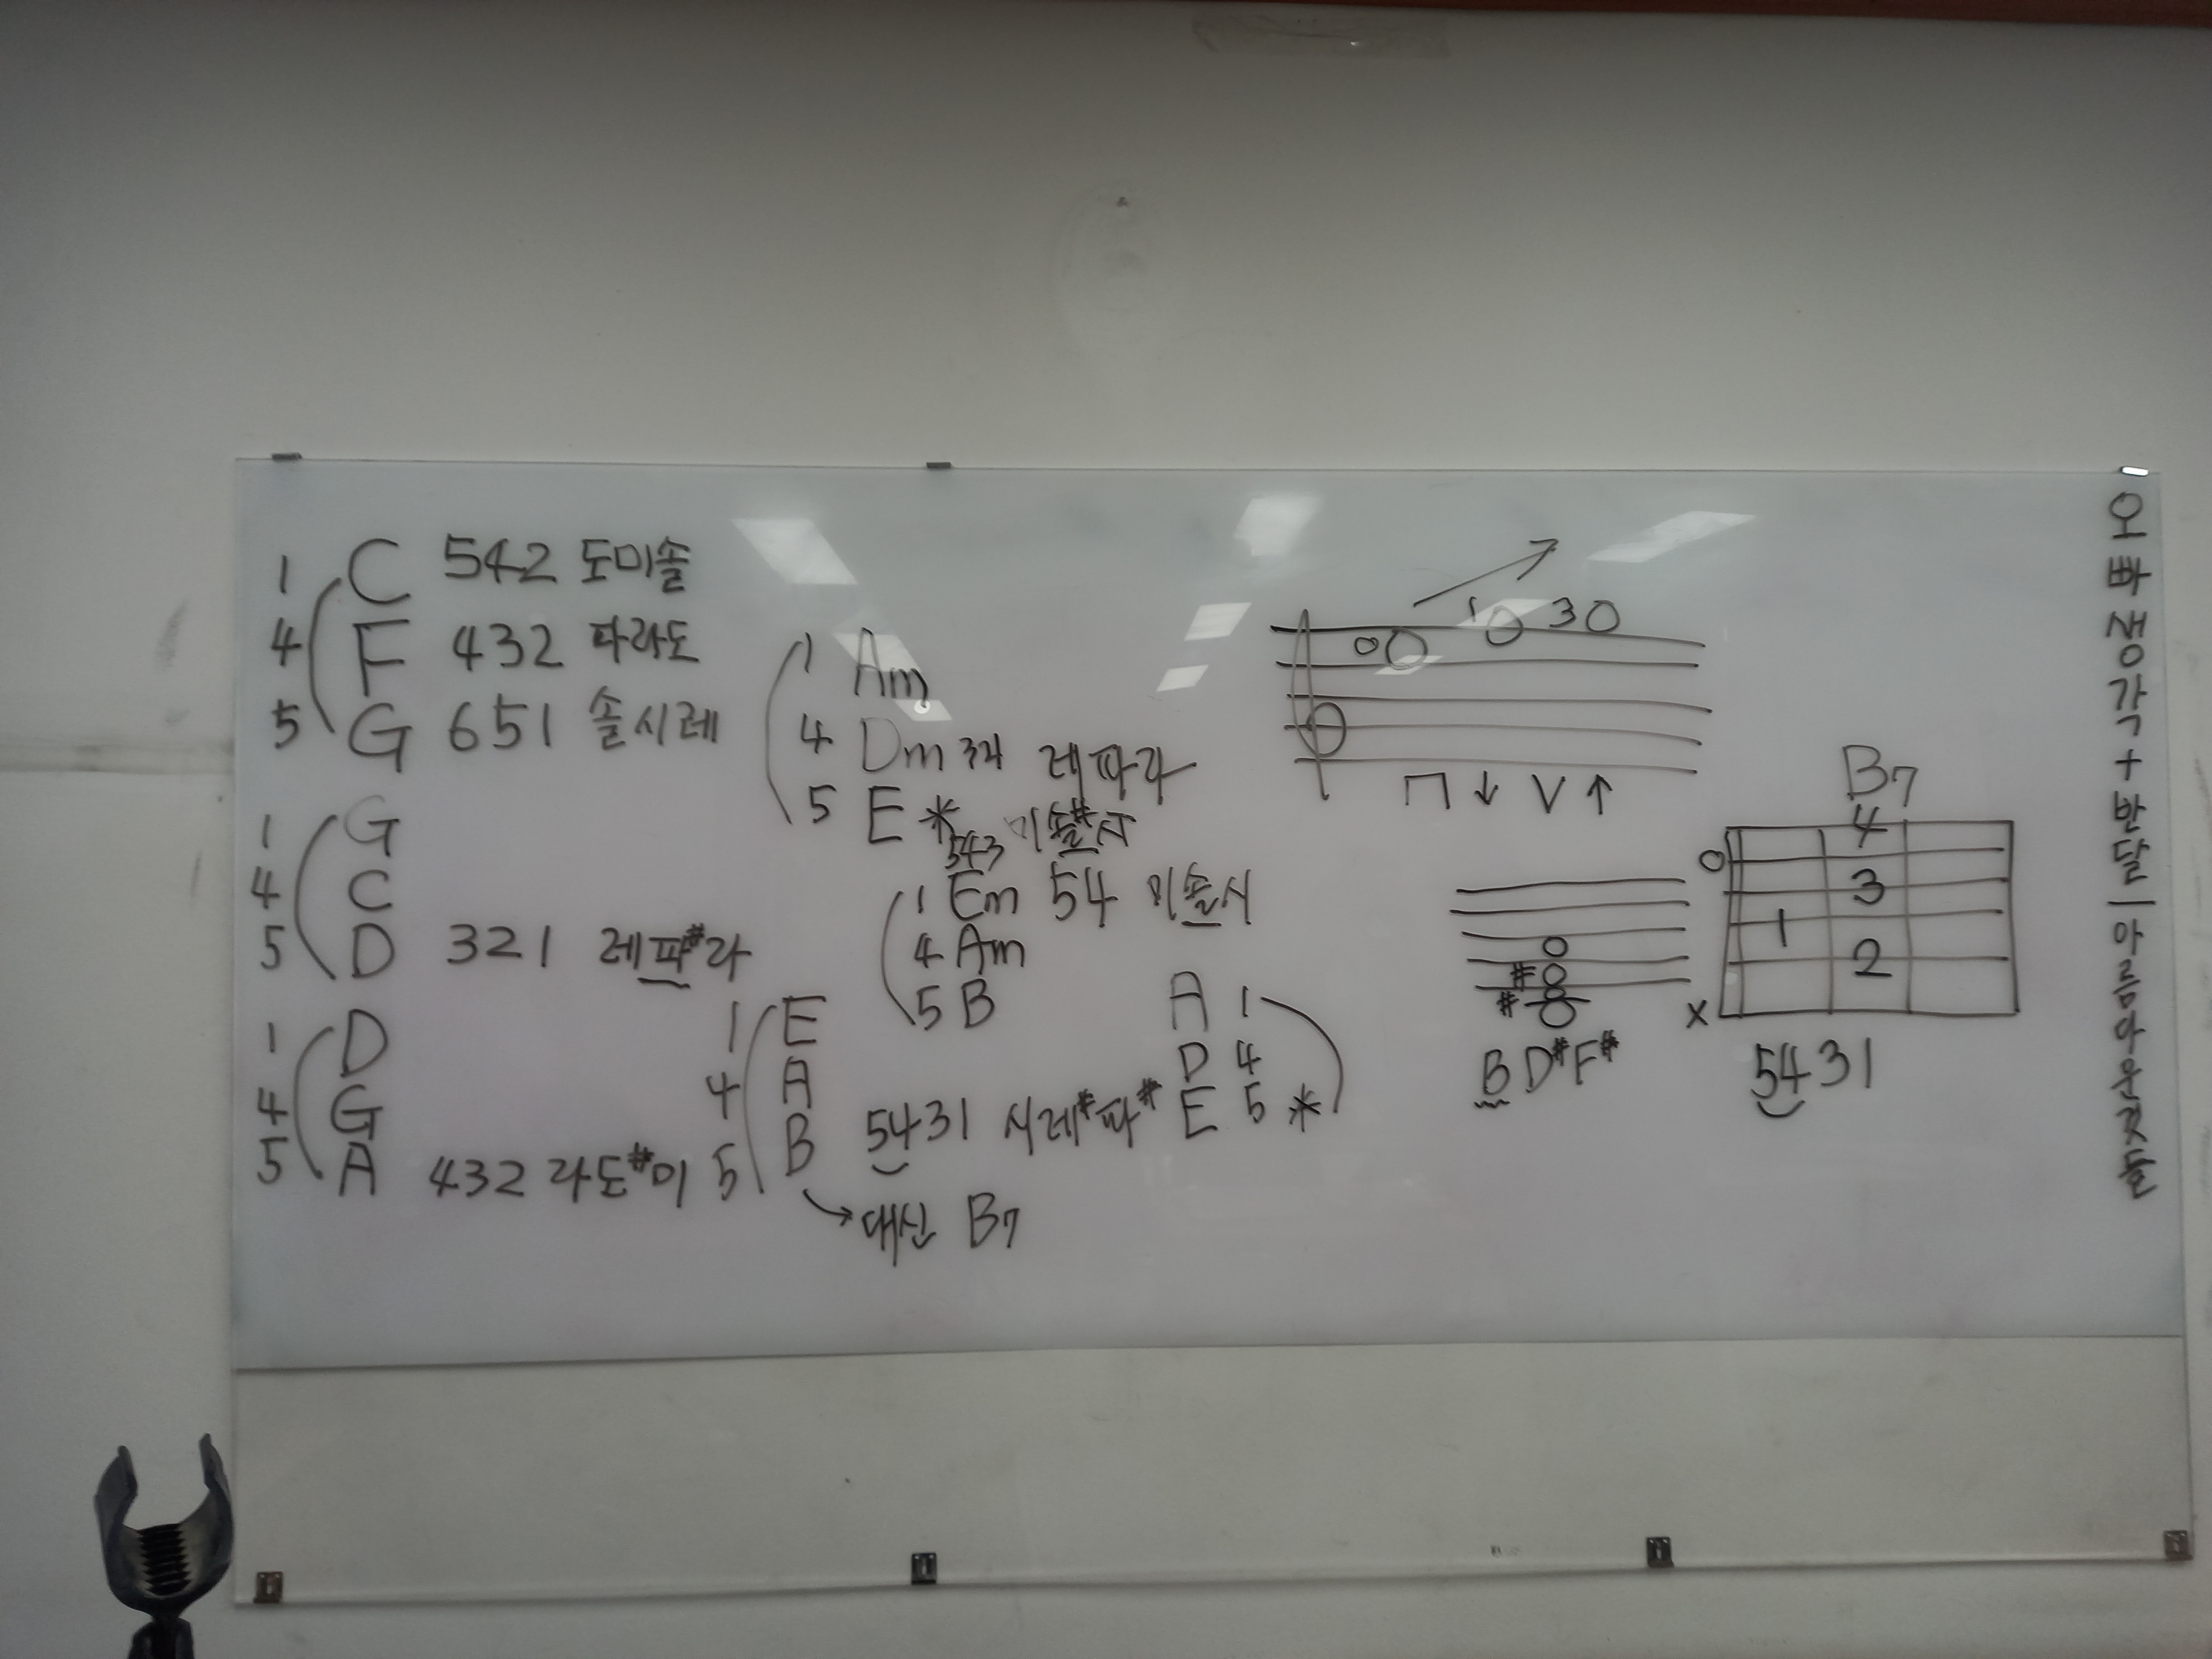 1 C 542 도미솔
4 F 432 파라도
5 G 651 솔시레
1 G
4 C
5 D 321 레파#라
1 D
4 G
5 A 432 라도#미
1 Am
4 Dm 레파라
5 E * 543 미솔#시
1 Em 54 미솔시
4 Am
5 B
1 E
4 A
5 B 5431 시레#파#
대신 B7
A 1
D 4
E 5 *
0 1 3
↓ V ↑
# #
B D# F#
B7
4
3
1
2
x
5431
오빠생각+반달|아름아운것들